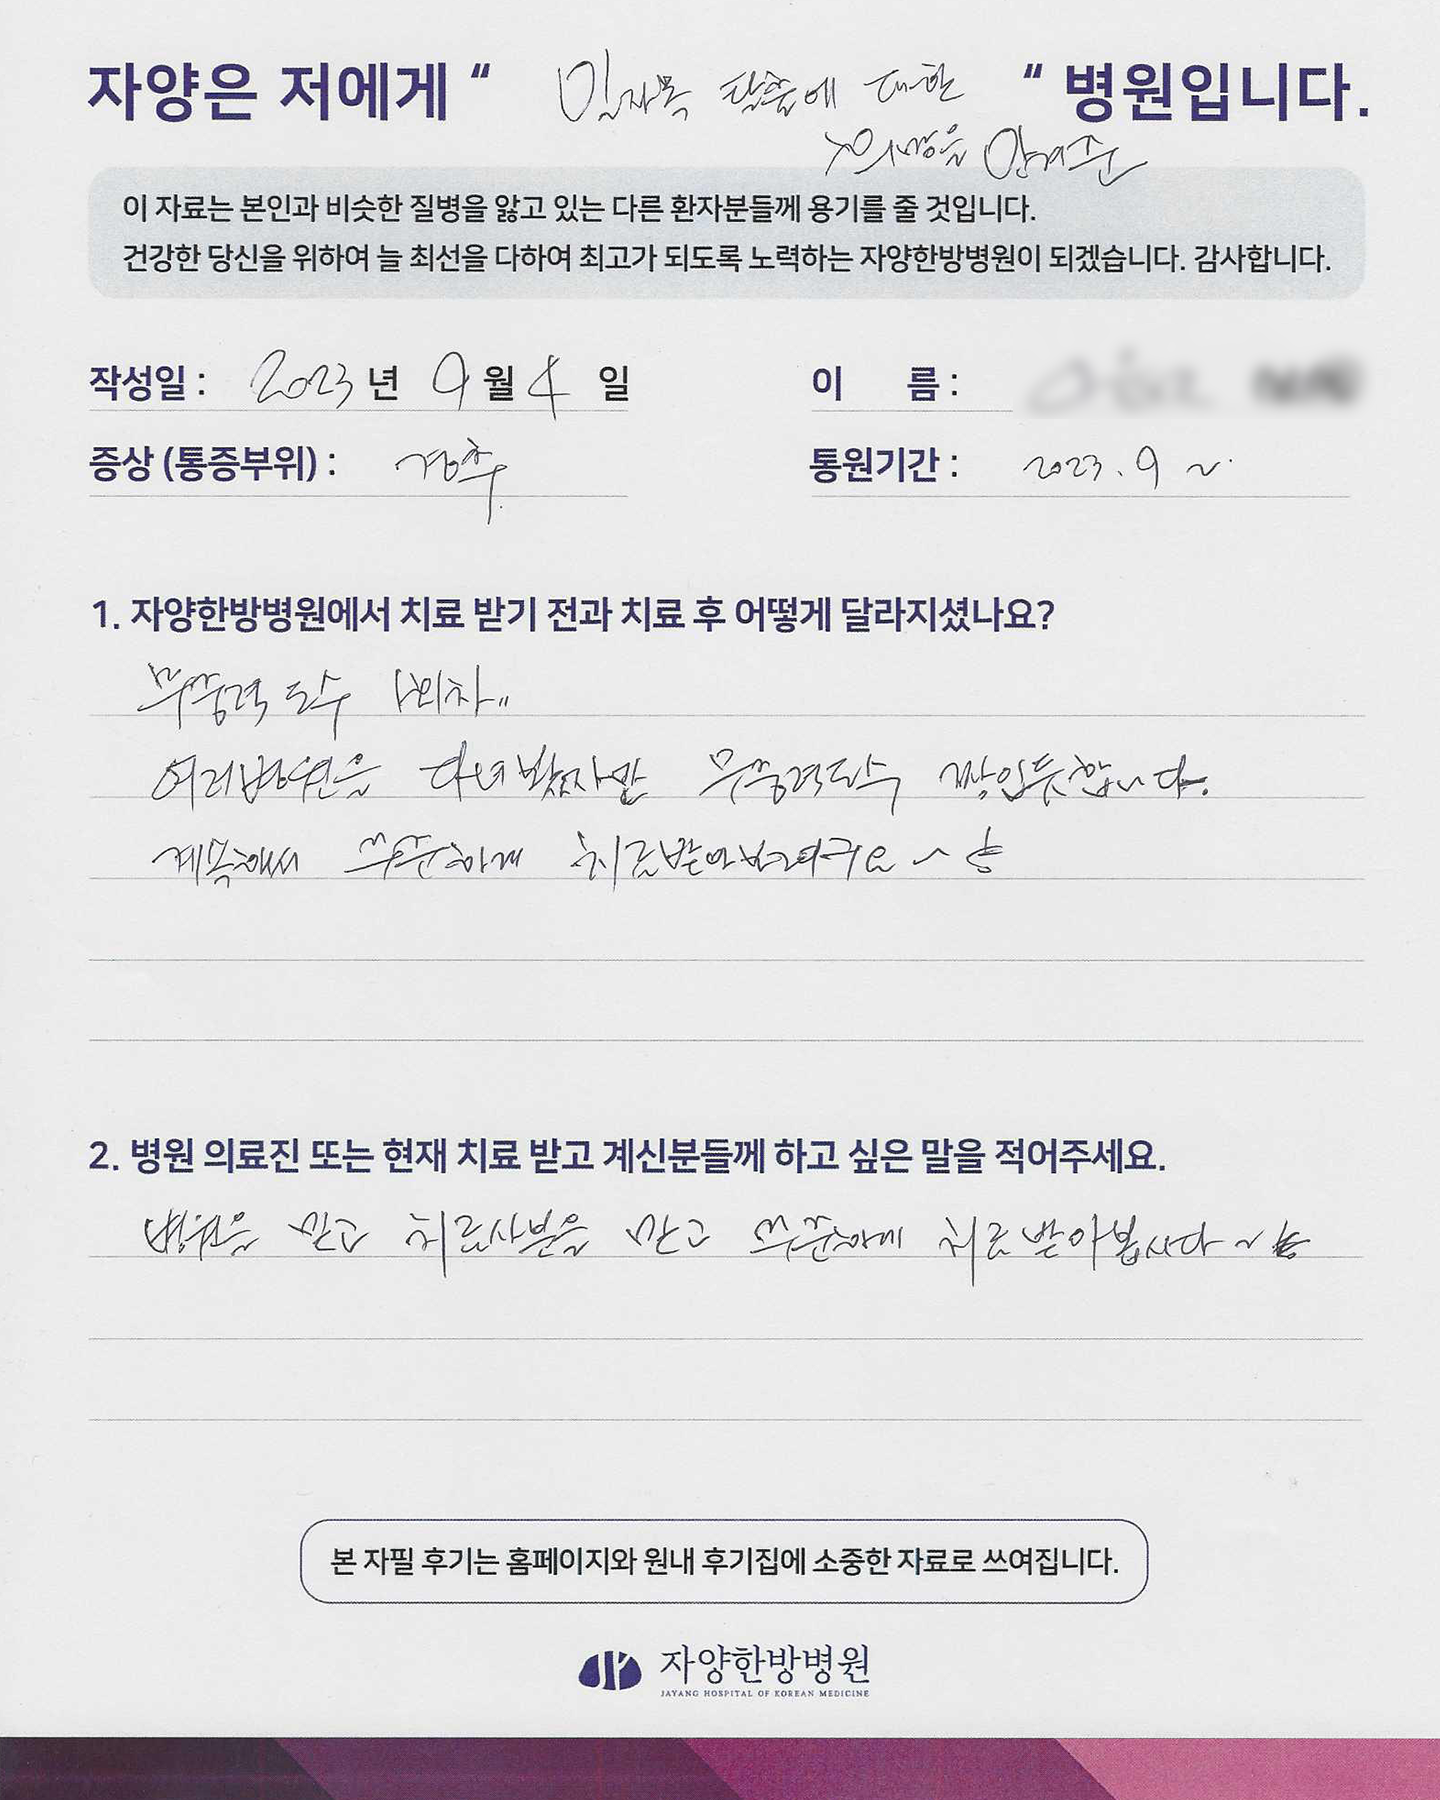 자양은 저에게 “ 일자목 탈출에 대한 “ 병원입니다.
희망을 안겨준
이 자료는 본인과 비슷한 질병을 앓고 있는 다른 환자분들께 용기를 줄 것입니다.
건강한 당신을 위하여 늘 최선을 다하여 최고가 되도록 노력하는 자양한방병원이 되겠습니다. 감사합니다.
작성일 : 2023 년 9 월 4 일
이 름 :
증상 (통증부위) : 경추
통원기간 : 2023. 9 ~.
1. 자양한방병원에서 치료 받기 전과 치료 후 어떻게 달라지셨나요?
무중력 도수 1회차..
여러병원을 다녀봤지만 무중력도수 짱인듯합니다.
계속해서 꾸준하게 치료받아보려구요~
2. 병원 의료진 또는 현재 치료 받고 계신분들께 하고 싶은 말을 적어주세요.
병원을 믿고 치료사분을 믿고 꾸준하게 치료받아봅시다~
본 자필 후기는 홈페이지와 원내 후기집에 소중한 자료로 쓰여집니다.
자양한방병원
JAYANG HOSPITAL OF KOREAN MEDICINE